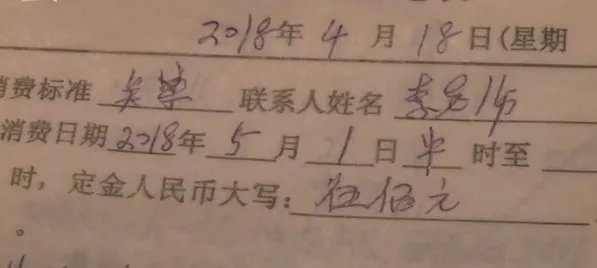 2018年4月18日(星期
消费标准 联系人姓名 李
消费日期2018年5月1日中时至
时,定金人民币大写:伍佰元
。